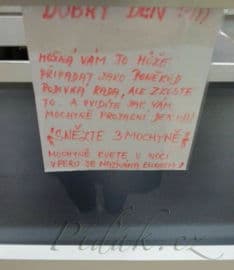 DOBRÝ DEN !!!!
MOŽNÁ VÁM TO MŮŽE
PŘIPADAT JAKO PONĚKUD
PODIVNÁ RADA, ALE ZKUSTE
TO.. A UVIDÍTE JAK VÁM
MOCHYNĚ PROJASNÍ DEN !!!!
SNĚZTE 3 MOCHYNĚ
MOCHYNĚ KVETE V NOCI
V PERU JE NAZÝVÁNA
Pidak.cz